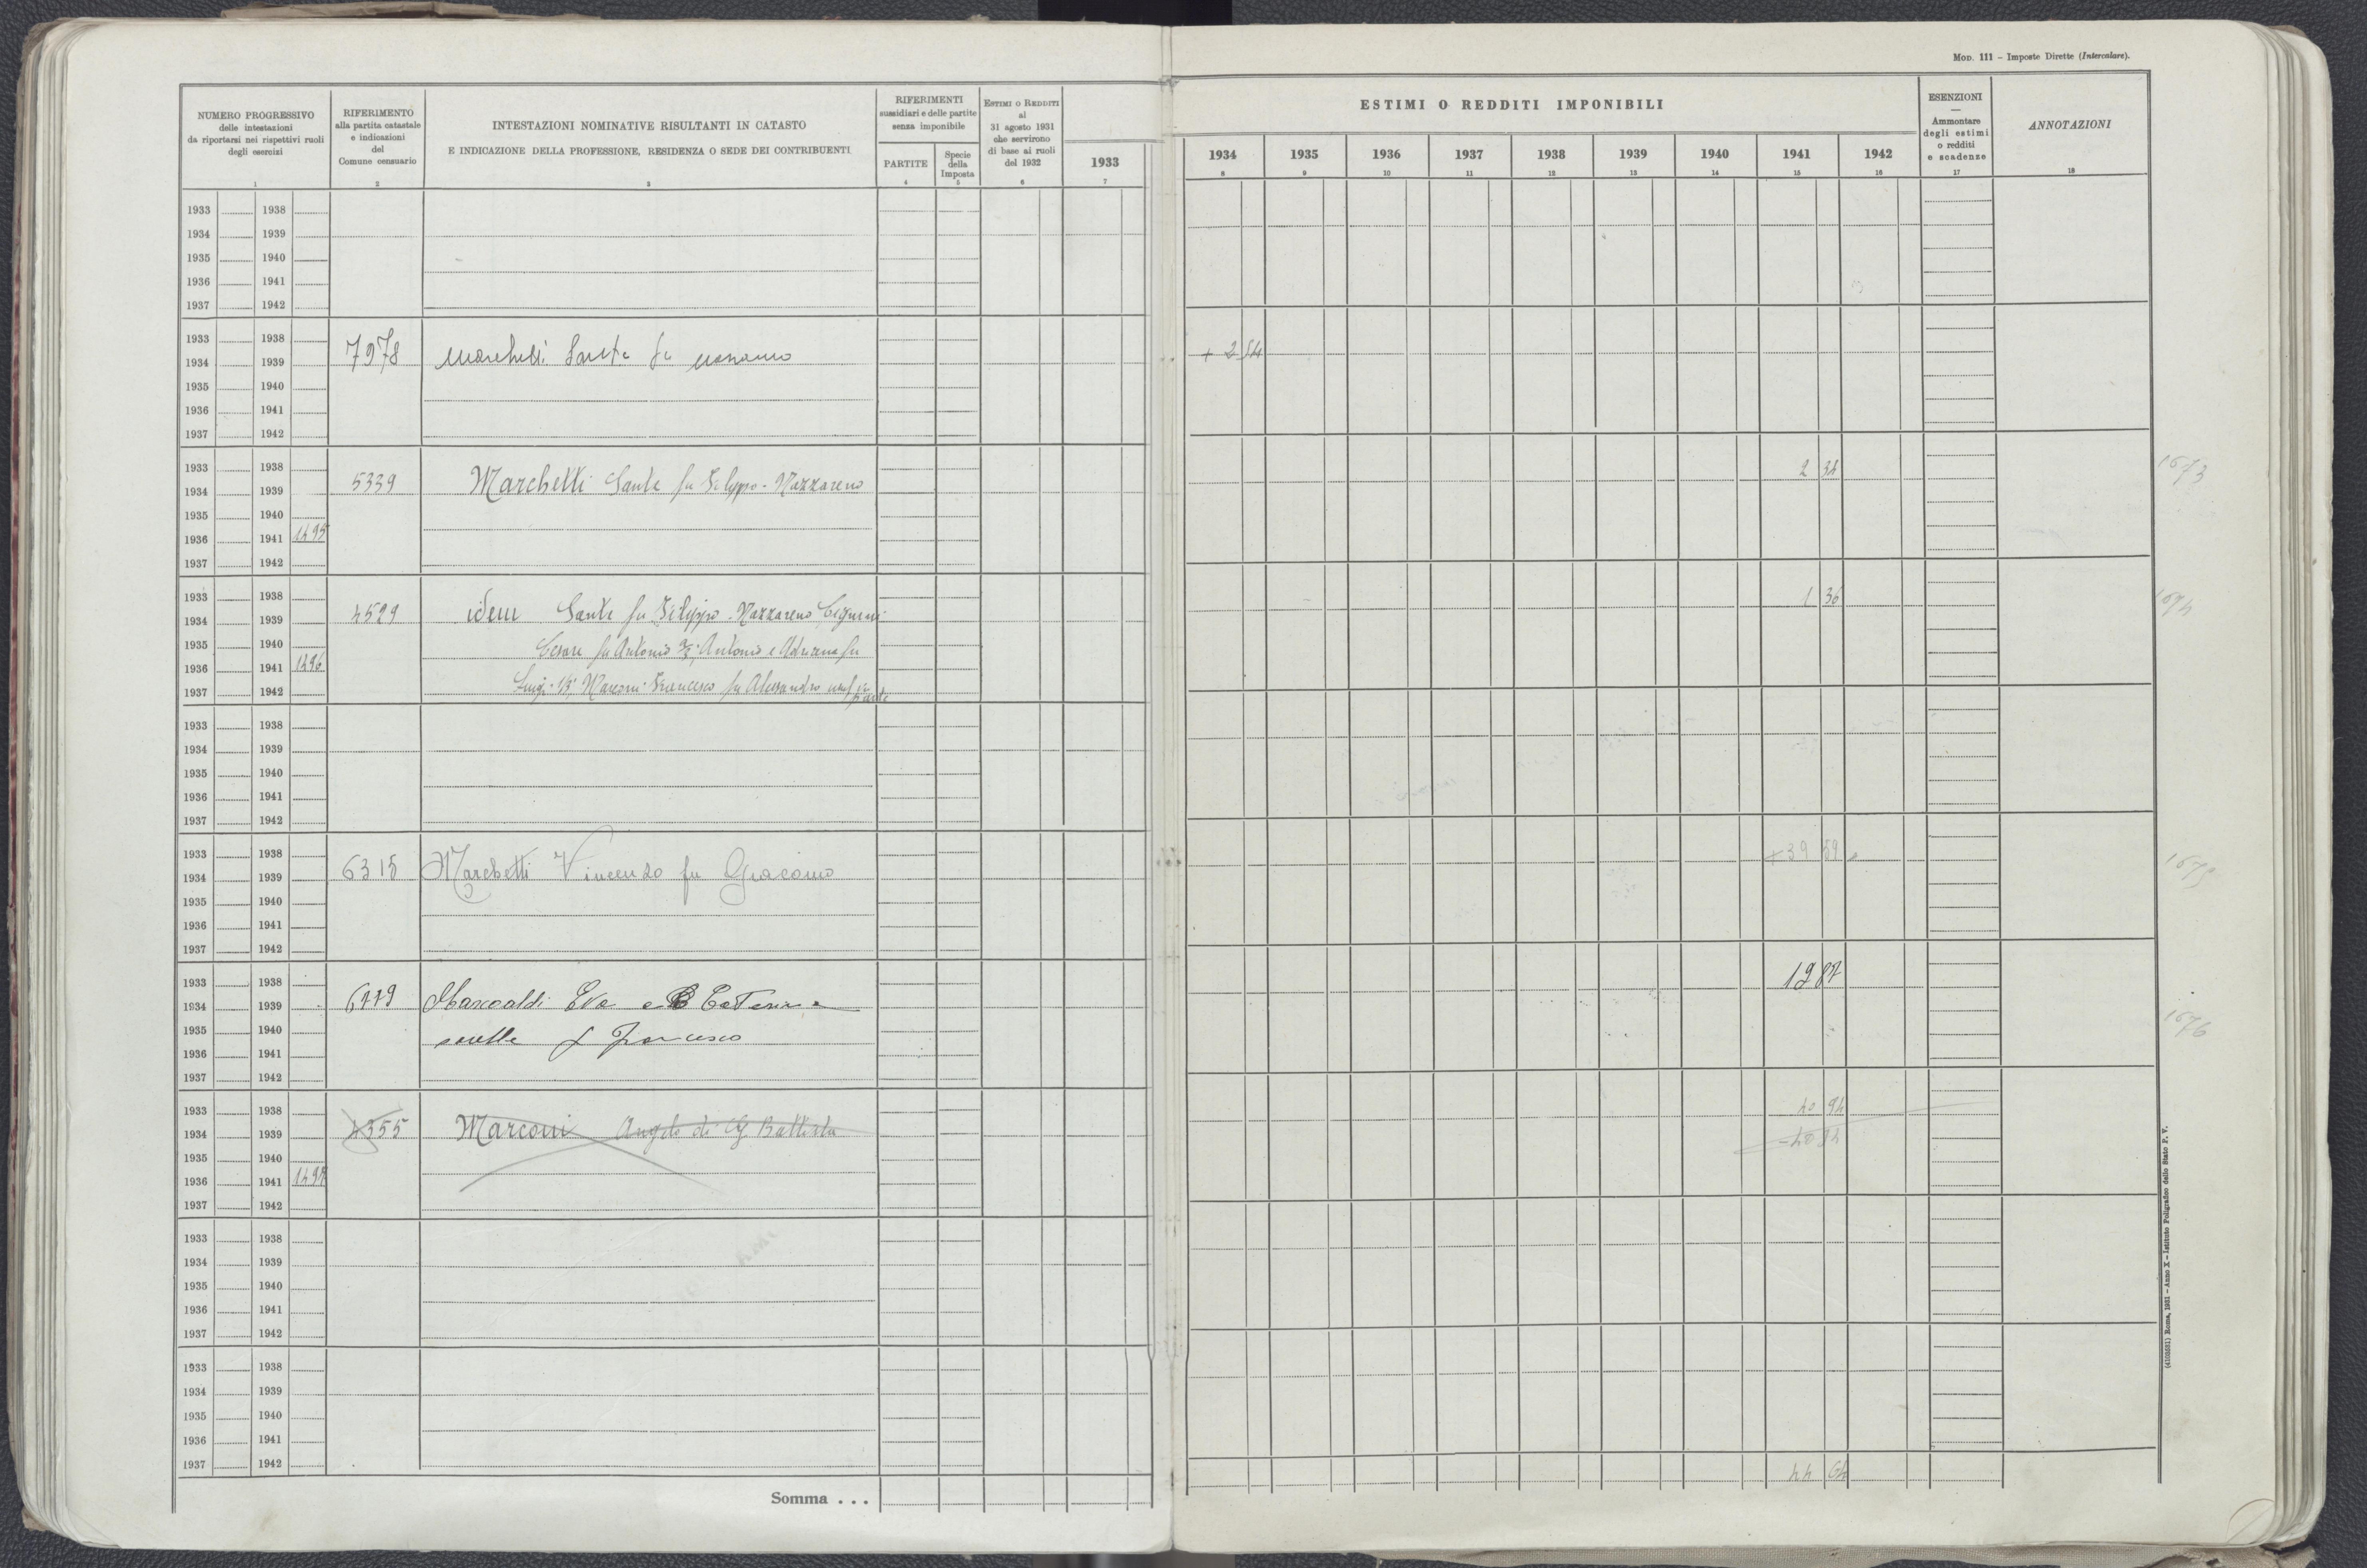 Mod. 111 – Imposte Dirette (Intercalare).
NUMERO PROGRESSIVO
delle intestazioni
da riportarsi nei rispettivi ruoli
degli esercizi
1
RIFERIMENTO
alla partita catastale
e indicazioni
del
Comune censuario
2
INTESTAZIONI NOMINATIVE RISULTANTI IN CATASTO
E INDICAZIONE DELLA PROFESSIONE, RESIDENZA O SEDE DEI CONTRIBUENTI
3
RIFERIMENTI
sussidiari e delle partite
senza imponibile
PARTITE
4
Specie
della
Imposta
5
Estimi o Redditi
al
31 agosto 1931
che servirono
di base ai ruoli
del 1932
6
1933
7
ESTIMI O REDDITI IMPONIBILI
1934 1935 1936 1937 1938 1939 1940 1941 1942
8 9 10 11 12 13 14 15 16
ESENZIONI
—
Ammontare
degli estimi
o redditi
e scadenze
17
ANNOTAZIONI
18
1933 1938
1934 1939
1935 1940
1936 1941
1937 1942
1933 1938
1934 1939 7978 Marchetti Sante fu + 2 54
1935 1940
1936 1941
1937 1942
1933 1938 2 34 1673
1934 1939 5339 Marchetti Sante fu Filippo - Nazzareno
1935 1940
1936 1941 1495
1937 1942
1933 1938 1 36 1674
1934 1939 4529 idem Sante fu Filippo - Nazzareno
1935 1940 Cesare fu Antonio 2/3 Antonio e Adriana fu
1936 1941 1496
1937 1942 Luigi 1/3 Marconi Francesco fu Alessandro
1933 1938
1934 1939
1935 1940
1936 1941
1937 1942
1933 1938 + 39 59
1934 1939 6315 Marchetti Vincenzo fu Giacomo 1675
1935 1940
1936 1941
1937 1942
1933 1938 12 87
1934 1939 6779 Marcoaldi Eva e Caterina 1676
1935 1940 sorelle f Francesco
1936 1941
1937 1942
1933 1938 40 94
1934 1939 4355 Marconi Angelo di G Battista - 40 94
1935 1940
1936 1941 1497
1937 1942
1933 1938
1934 1939
1935 1940
1936 1941
1937 1942
1933 1938
1934 1939
1935 1940
1936 1941
1937 1942
44 64
Somma . . .
(4103581) Roma, 1931 – Anno X – Istituto Poligrafico dello Stato P. V.